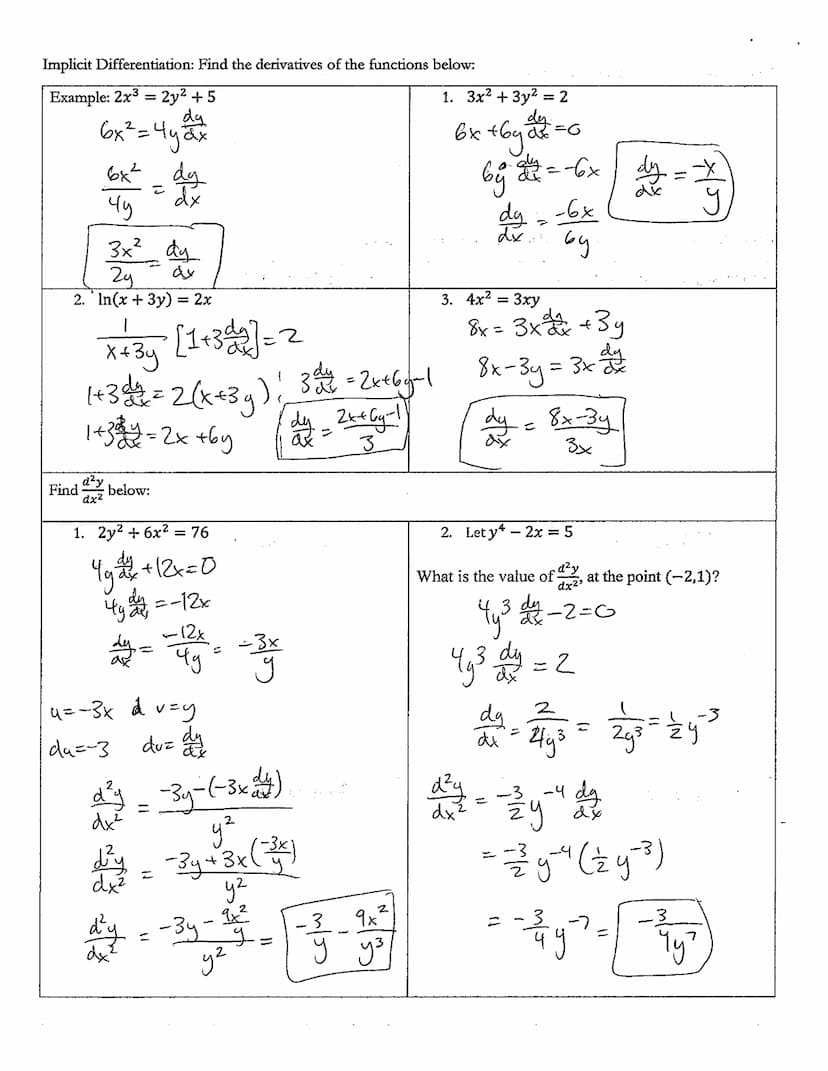 Implicit Differentiation: Find the derivatives of the functions below:
Example: 2x³ = 2y² + 5
6x² = 4y dy/dx
6x²/4y = dy/dx
3x²/2y = dy/dx
1. 3x² + 3y² = 2
6x + 6y dy/dx = 0
6y dy/dx = -6x
dy/dx = -6x/6y
dy/dx = -x/y
2. ln(x + 3y) = 2x
1/(x+3y) [1+3 dy/dx] = 2
1+3 dy/dx = 2(x+3y)
1+3 dy/dx = 2x + 6y
3 dy/dx = 2x+6y-1
dy/dx = (2x+6y-1)/3
3. 4x² = 3xy
8x = 3x dy/dx + 3y
8x-3y = 3x dy/dx
dy/dx = (8x-3y)/3x
Find d²y/dx² below:
1. 2y² + 6x² = 76
4y dy/dx + 12x = 0
4y dy/dx = -12x
dy/dx = -12x/4y = -3x/y
u = -3x v = y
du = -3 dv = dy/dx
d²y/dx² = (-3y-(-3x dy/dx))/y²
d²y/dx² = (-3y+3x(-3x/y))/y²
d²y/dx² = (-3y - 9x²/y)/y² = -3/y - 9x²/y³
2. Let y⁴ − 2x = 5
What is the value of d²y/dx², at the point (−2,1)?
4y³ dy/dx - 2 = 0
4y³ dy/dx = 2
dy/dx = 2/4y³ = 1/2y³ = 1/2 y⁻³
d²y/dx² = -3/2 y⁻⁴ dy/dx
= -3/2 y⁻⁴ (1/2 y⁻³)
= -3/4 y⁻⁷ = -3/4y⁷